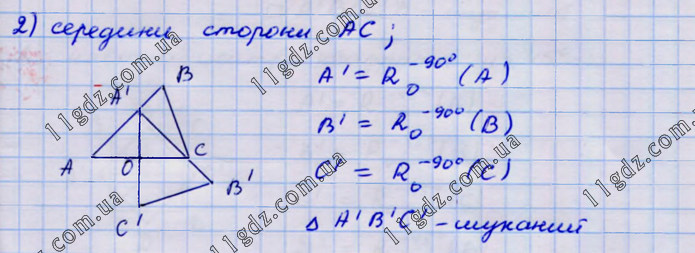 2) середини сторони AC;
A' = R_O^{-90°} (A)
B' = R_O^{-90°} (B)
C' = R_O^{-90°} (C)
Δ A'B'C' - шуканий
B
A'
A
O
C
B'
C'
11gdz.com.ua
11gdz.com.ua
11gdz.com.ua
11gdz.com.ua
11gdz.com.ua
11gdz.com.ua